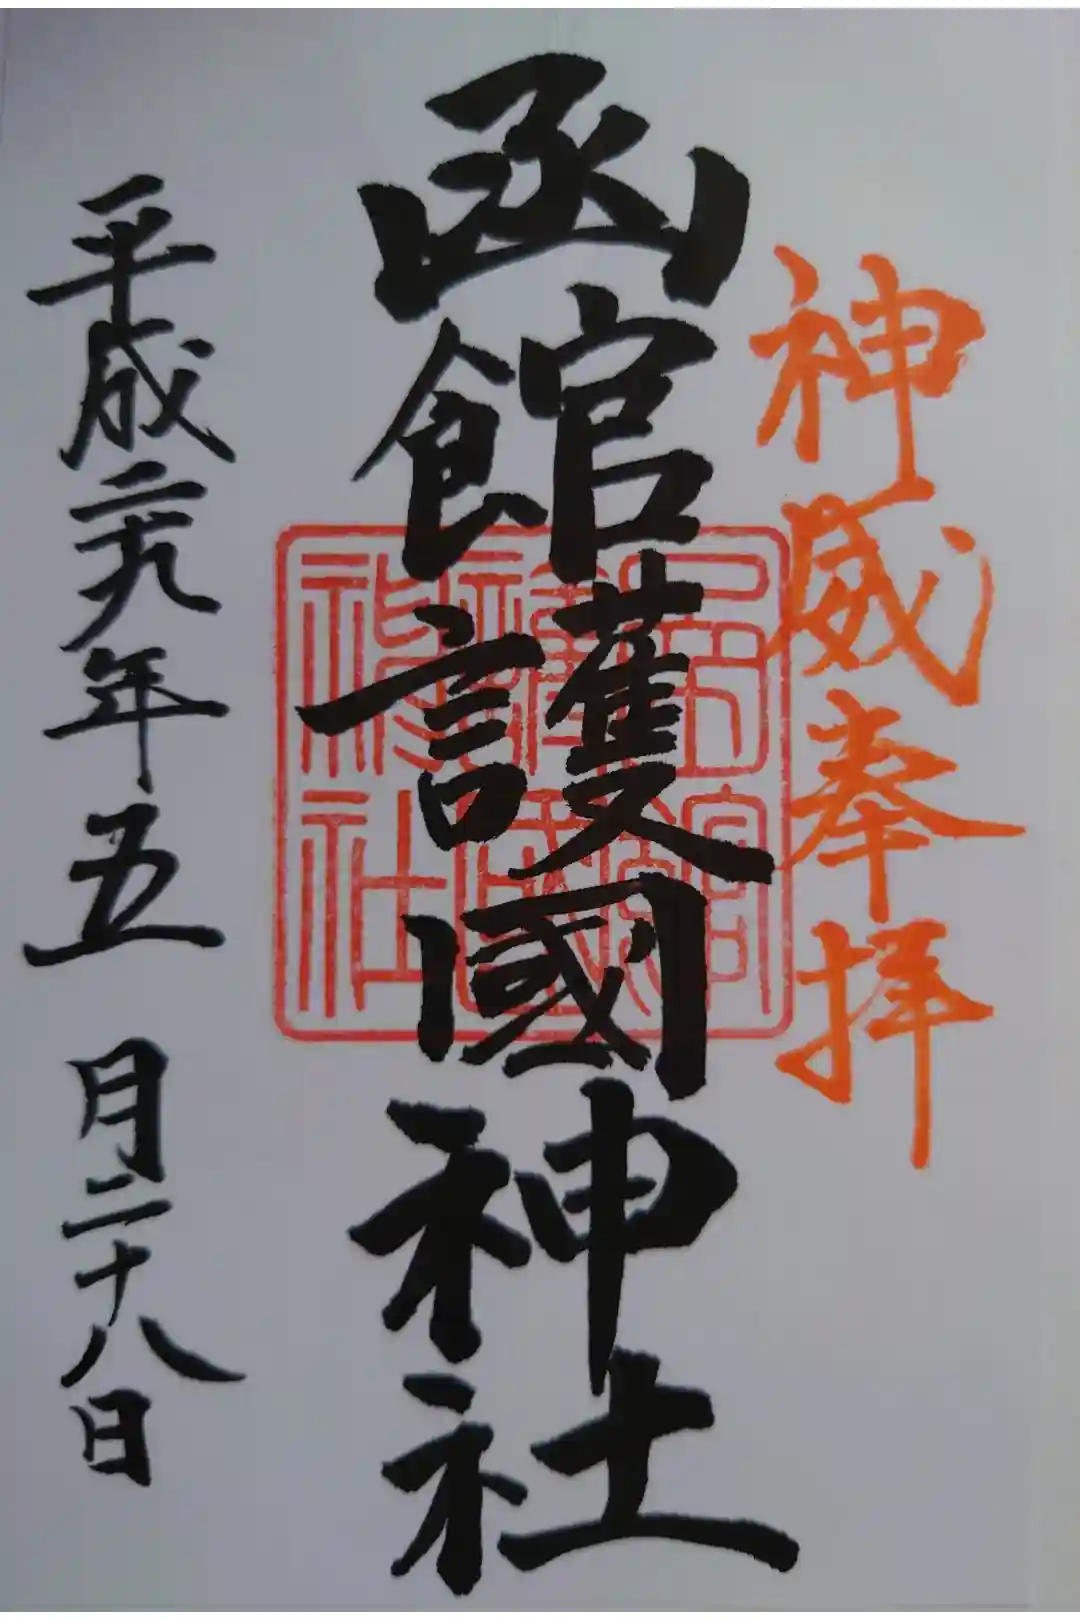 神威奉拝
函館護國神社
平成二十九年五月二十八日
函館
護國
神社